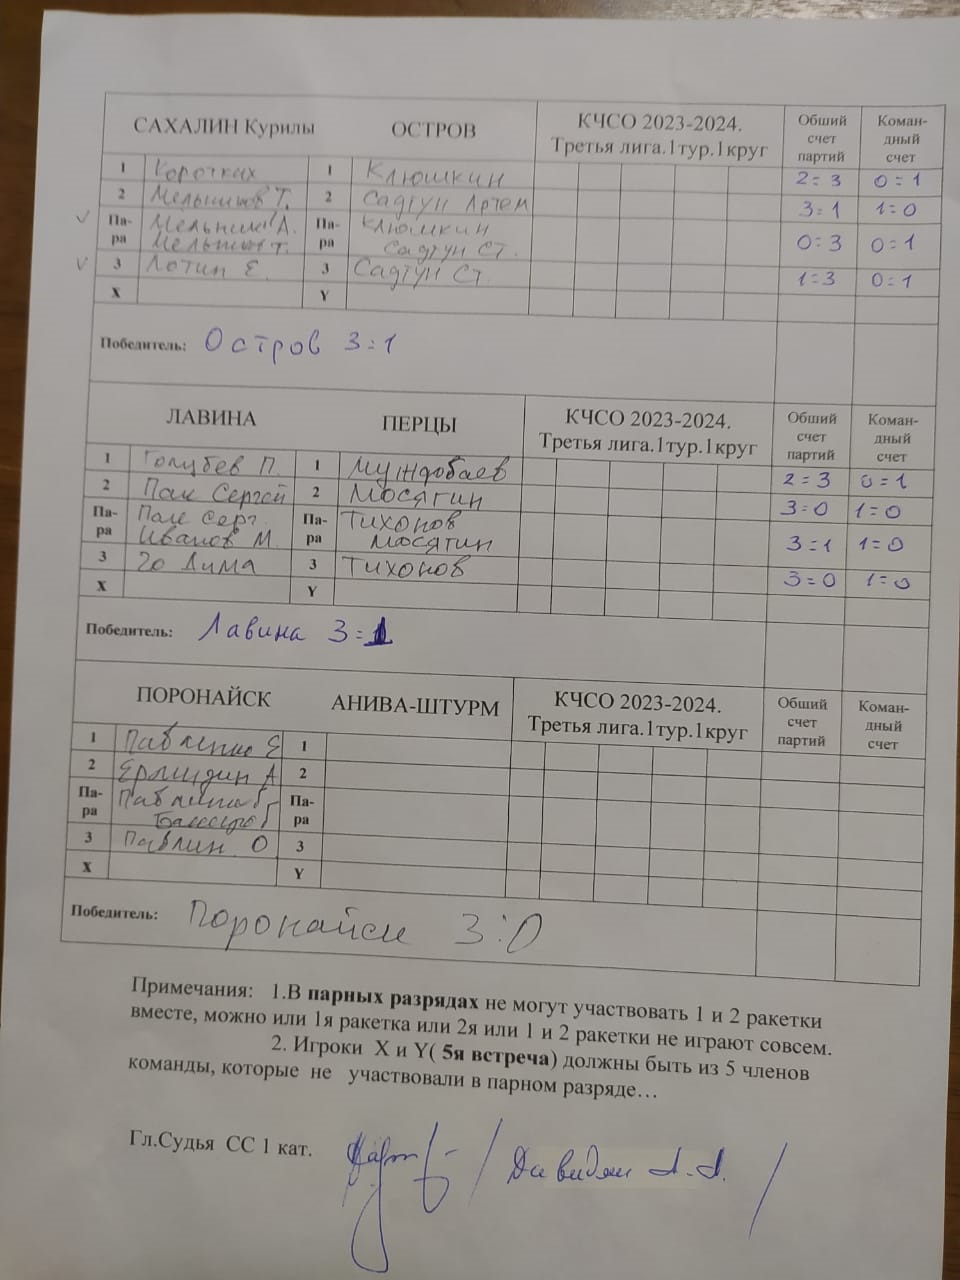 САХАЛИН Курилы ОСТРОВ КЧСО 2023-2024. Третья лига.1тур.1круг Общий счет партий Коман-дный счет
1 Коротких 1 Клюшкин 2=3 0=1
2 Мельников Т. 2 Садгун Артем 3=1 1=0
Па- Мельник А. Па- Клюшкин
ра Мельников Т. ра Садгун Ст. 0=3 0=1
3 Лотин Е. 3 Садгун Ст. 1=3 0=1
X Y
Победитель: Остров 3=1
ЛАВИНА ПЕРЦЫ КЧСО 2023-2024. Третья лига.1тур.1круг Общий счет партий Коман-дный счет
1 Голубев П. 1 Мундобаев 2=3 0=1
2 Пак Сергей 2 Мосягин 3=0 1=0
Па- Пак Серг. Па- Тихонов
ра Иванов М. ра Мосягин 3=1 1=0
3 Го Дима 3 Тихонов 3=0 1=0
X Y
Победитель: Лавина 3=1
ПОРОНАЙСК АНИВА-ШТУРМ КЧСО 2023-2024. Третья лига.1тур.1круг Общий счет партий Коман-дный счет
1 Е 1
2 А 2
Па- Па-
ра ра
3 Павлин О 3
X Y
Победитель: Поронайск 3:0
Примечания: 1.В парных разрядах не могут участвовать 1 и 2 ракетки
вместе, можно или 1я ракетка или 2я или 1 и 2 ракетки не играют совсем.
2. Игроки X и Y( 5я встреча) должны быть из 5 членов
команды, которые не участвовали в парном разряде…
Гл.Судья СС 1 кат. / Давидян А.А. /